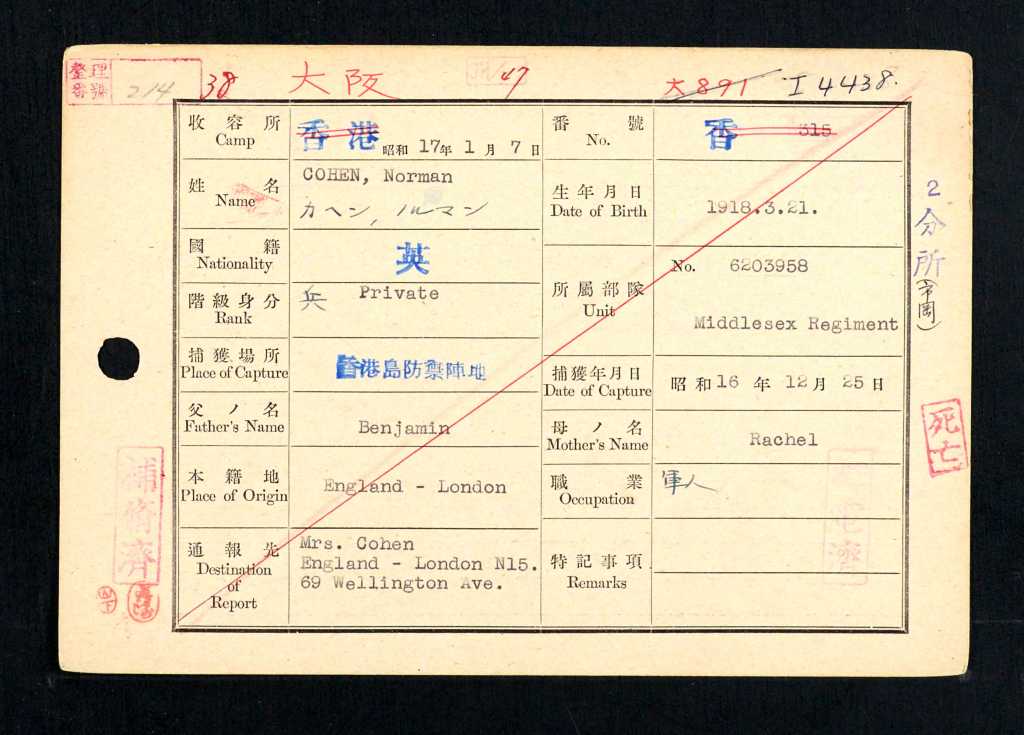 整理番號 214
38 大阪 47 大891 I 4438.
收容所 Camp 香港 昭和 17年 1月 7日
番號 No. 香 315
姓名 Name COHEN, Norman
カヘン, ノルマン
生年月日 Date of Birth 1918.3.21.
國籍 Nationality 英
階級身分 Rank 兵 Private
所屬部隊 Unit No. 6203958
Middlesex Regiment
2分所(市岡)
捕獲場所 Place of Capture 香港島防禦陣地
捕獲年月日 Date of Capture 昭和16年 12月 25日
父ノ名 Father's Name Benjamin
母ノ名 Mother's Name Rachel
死亡
本籍地 Place of Origin England - London
職業 Occupation 軍人
補修濟
通報先 Destination of Report Mrs. Cohen
England - London N15.
69 Wellington Ave.
特記事項 Remarks